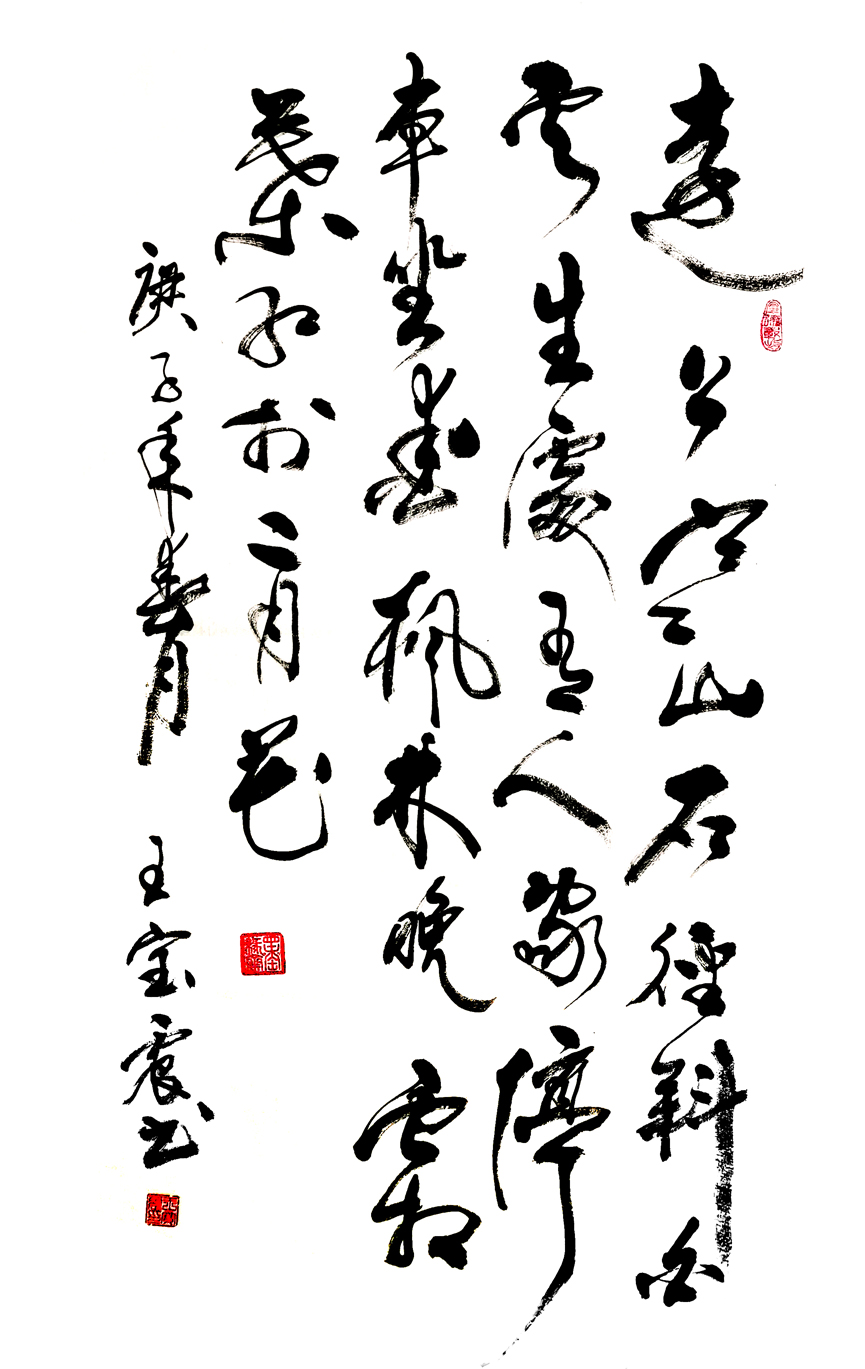 遠上寒山石徑斜白
雲生處有人家停
車坐愛楓林晚霜
葉紅於二月花
庚子年春月 王宝震书